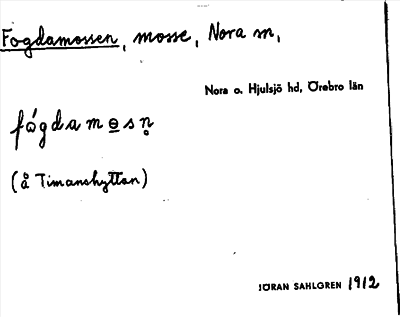 Fogdamossen, mosse, Nora m,
Nora o. Hjulsjö hd, Örebro län
fǻgdamo̲sn̥
(å Timanshyttan)
JÖRAN SAHLGREN 1912